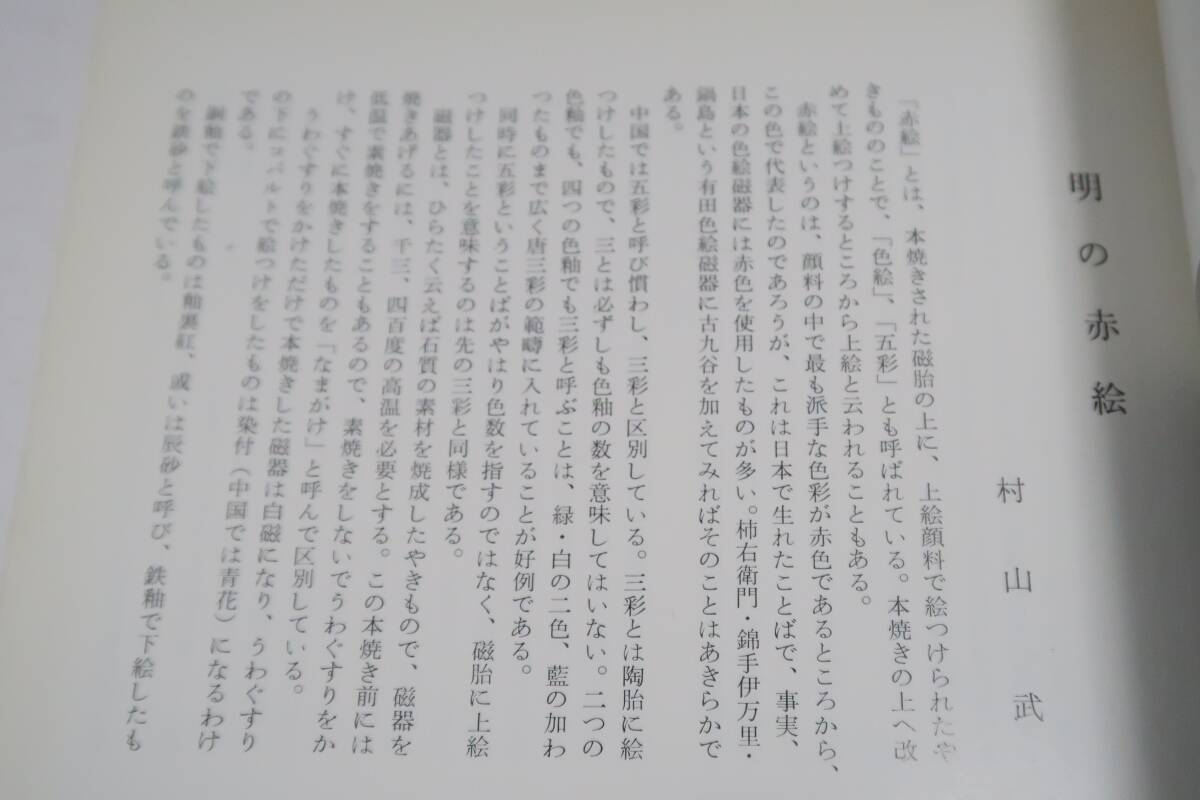 明の赤絵
村山武
「赤絵」とは、本焼きされた磁胎の上に、上絵顔料で絵つけられたや
きもののことで、「色絵」、「五彩」とも呼ばれている。本焼きの上へ改
めて上絵つけするところから上絵と云われることもある。
赤絵というのは、顔料の中で最も派手な色彩が赤色であるところから、
この色で代表したのであろうが、これは日本で生れたことばで、事実、
日本の色絵磁器には赤色を使用したものが多い。柿右衛門・錦手伊万里・
鍋島という有田色絵磁器に古九谷を加えてみればそのことはあきらかで
ある。
中国では五彩と呼び慣わし、三彩と区別している。三彩とは陶胎に絵
つけしたもので、三とは必ずしも色釉の数を意味してはいない。二つの
色釉でも、四つの色釉でも三彩と呼ぶことは、緑・白の二色、藍の加わ
ったものまで広く唐三彩の範疇に入れていることが好例である。
同時に五彩ということばがやはり色数を指すのではなく、磁胎に上絵
つけしたことを意味するのは先の三彩と同様である。
磁器とは、ひらたく云えば石質の素材を焼成したやきもので、磁器を
焼きあげるには、千三、四百度の高温を必要とする。この本焼き前には
低温で素焼きをすることもあるので、素焼きをしないでうわぐすりをか
け、すぐに本焼きしたものを「なまがけ」と呼んで区別している。
うわぐすりをかけただけで本焼きした磁器は白磁になり、うわぐすり
の下にコバルトで絵つけをしたものは染付（中国では青花）になるわけ
である。
銅釉で下絵したものは釉裏紅、或いは辰砂と呼び、鉄釉で下絵したも
のを鉄砂と呼んでいる。